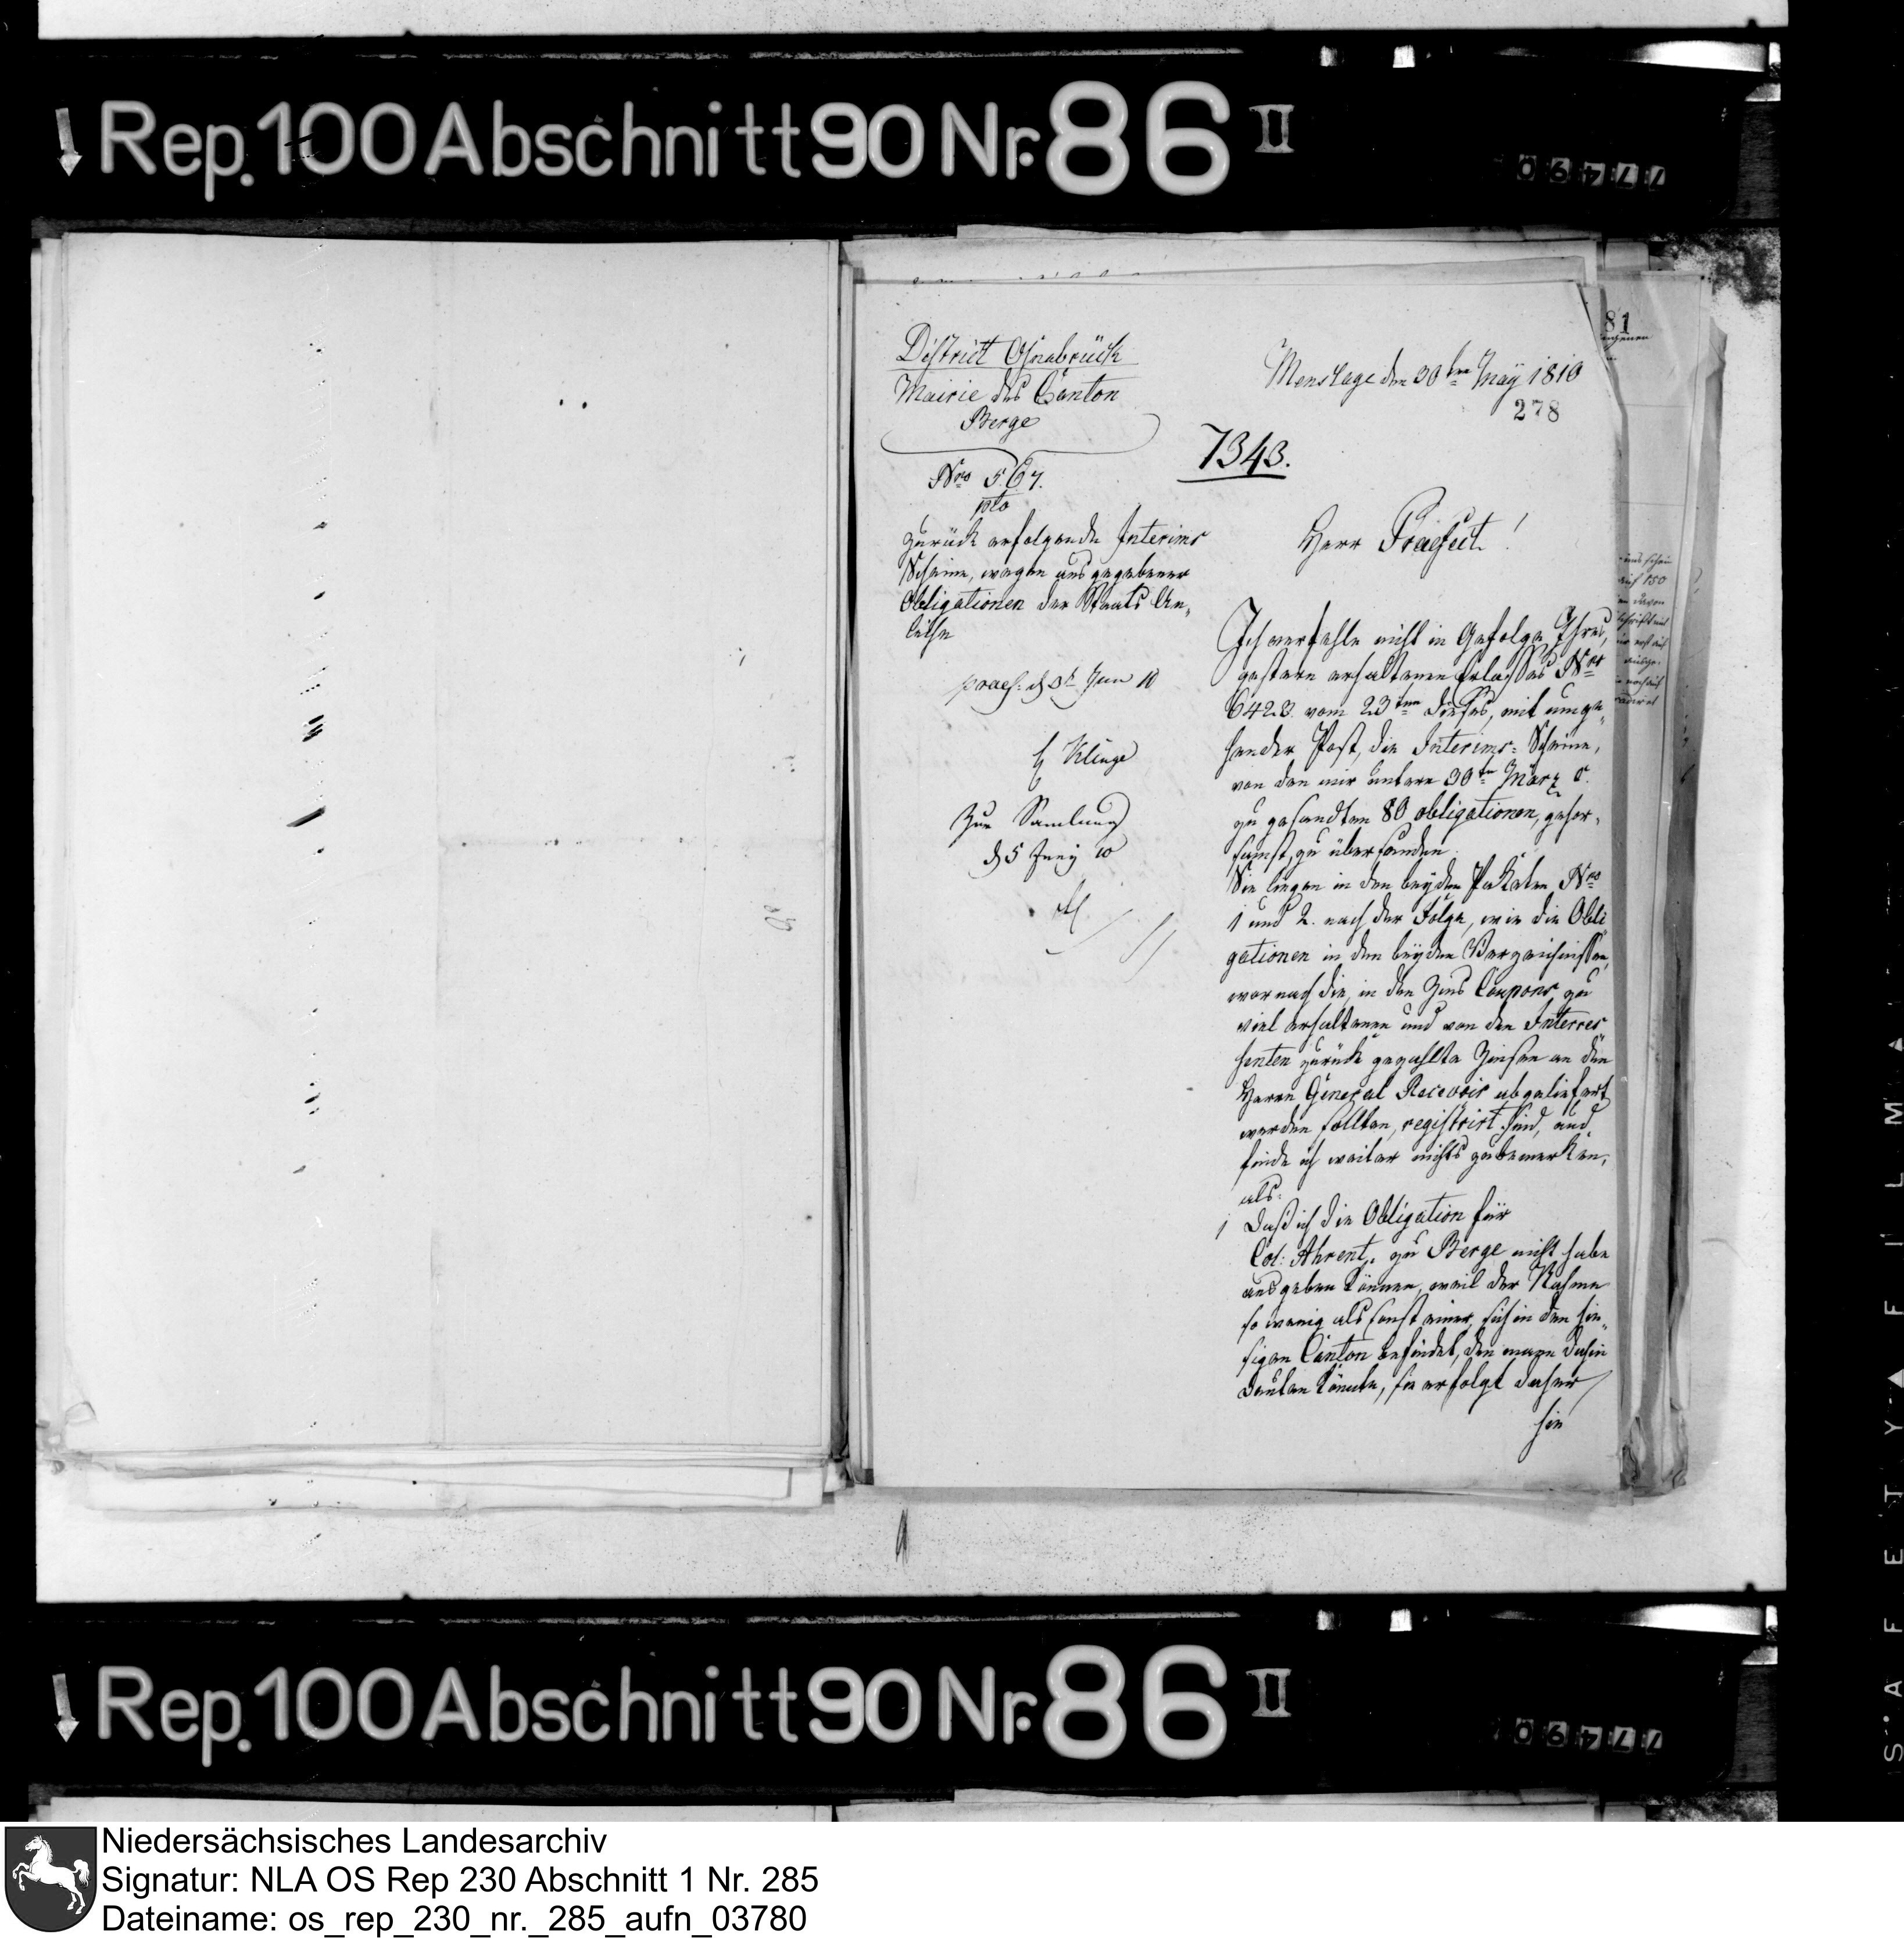 Rep. 100 Abschnitt 90 Nr. 86 II
77490
District Osnabrück
Mairie des Canton
Berge
Nro 567.
pto
zurück erfolgende Interims
Scheine, wegen ausgegebener
Obligationen der Staats An„
leihe
praes: d 3t Jun 10
Klinge
Zur Samlung
d 5 Juny 10
Menslage den 30ten Maÿ 1810
278
7343.
Herr Praefect!
Ich verfehle nicht in Gefolge Ihres,
gestern erhaltenen Erlasses Nro
6423. vom 23ten dieses, mit umge„
hender Post, die Interims-Scheine,
von den mir unterm 30ten März c.
zu gesandten 80 obligationen, gehor„
samst, zu übersenden.
Sie liegen in den beÿden Paketen Nro
1 und 2. nach der Folge, wie die Obli
gationen in den beÿden Verzeichnissen,
wornach die, in den Zins Coupons zu
viel erhaltenen und von den Interres
senten zurück gezahlte Zinsen an den
Herrn General Recevoir abgeliefert
werden sollten, registrirt sind, und
finde ich weiter nichts zu bemerken,
als:
1 Daß ich die Obligation für
Col: Ahrent, zu Berge nicht habe
ausgeben können, weil der Nahme
so wenig als sonst einer, sich in den hie„
sigen Canton befindet, den man dahin
deuten könnte, sie erfolgt daher
hie
81
auf 150
davon
Rep. 100 Abschnitt 90 Nr. 86 II
77490
SAFETY FILM
Niedersächsisches Landesarchiv
Signatur: NLA OS Rep 230 Abschnitt 1 Nr. 285
Dateiname: os_rep_230_nr._285_aufn_03780